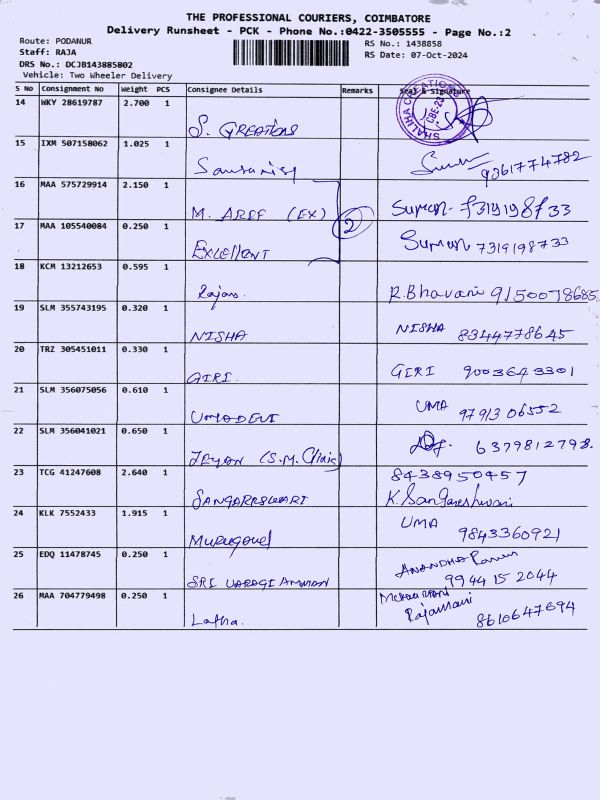 THE PROFESSIONAL COURIERS, COIMBATORE
Delivery Runsheet - PCK - Phone No.:0422-3505555 - Page No.:2
Route: PODANUR
RS No.: 1438858
Staff: RAJA
RS Date: 07-Oct-2024
DRS No.: DCJB143885802
Vehicle: Two Wheeler Delivery
S No Consignment No Weight PCS Consignee Details Remarks Seal & Signature
14 WKY 28619787 2.700 1 S. CREATIONS
SHALIHA CREATIONS
15 IXM 507158062 1.025 1 9361774782
16 MAA 575729914 2.150 1 M. AREF (EX) Suman 7319198733
2
17 MAA 105540084 0.250 1 EXCELLENT Suman 7319198733
18 KCM 13212653 0.595 1 R.Bhavani 9150078685
19 SLM 355743195 0.320 1 NISHA NISHA 8344778645
20 TRZ 305451011 0.330 1 GIRI. GIRI 9003643301
21 SLM 356075056 0.610 1 UMADEVI UMA 97913 06552
22 SLM 356041021 0.650 1 JEYAN (S.M. Clinic) 6379812798.
23 TCG 41247608 2.640 1 SANGARESHWARI 8438950457
K.Sangareshwari
24 KLK 7552433 1.915 1 Murugavel UMA 9843360921
25 EDQ 11478745 0.250 1 SRI VARAGI AMMAN ANANDHA 99 44 15 2044
26 MAA 704779498 0.250 1 Latha. Rajamani 8610647694